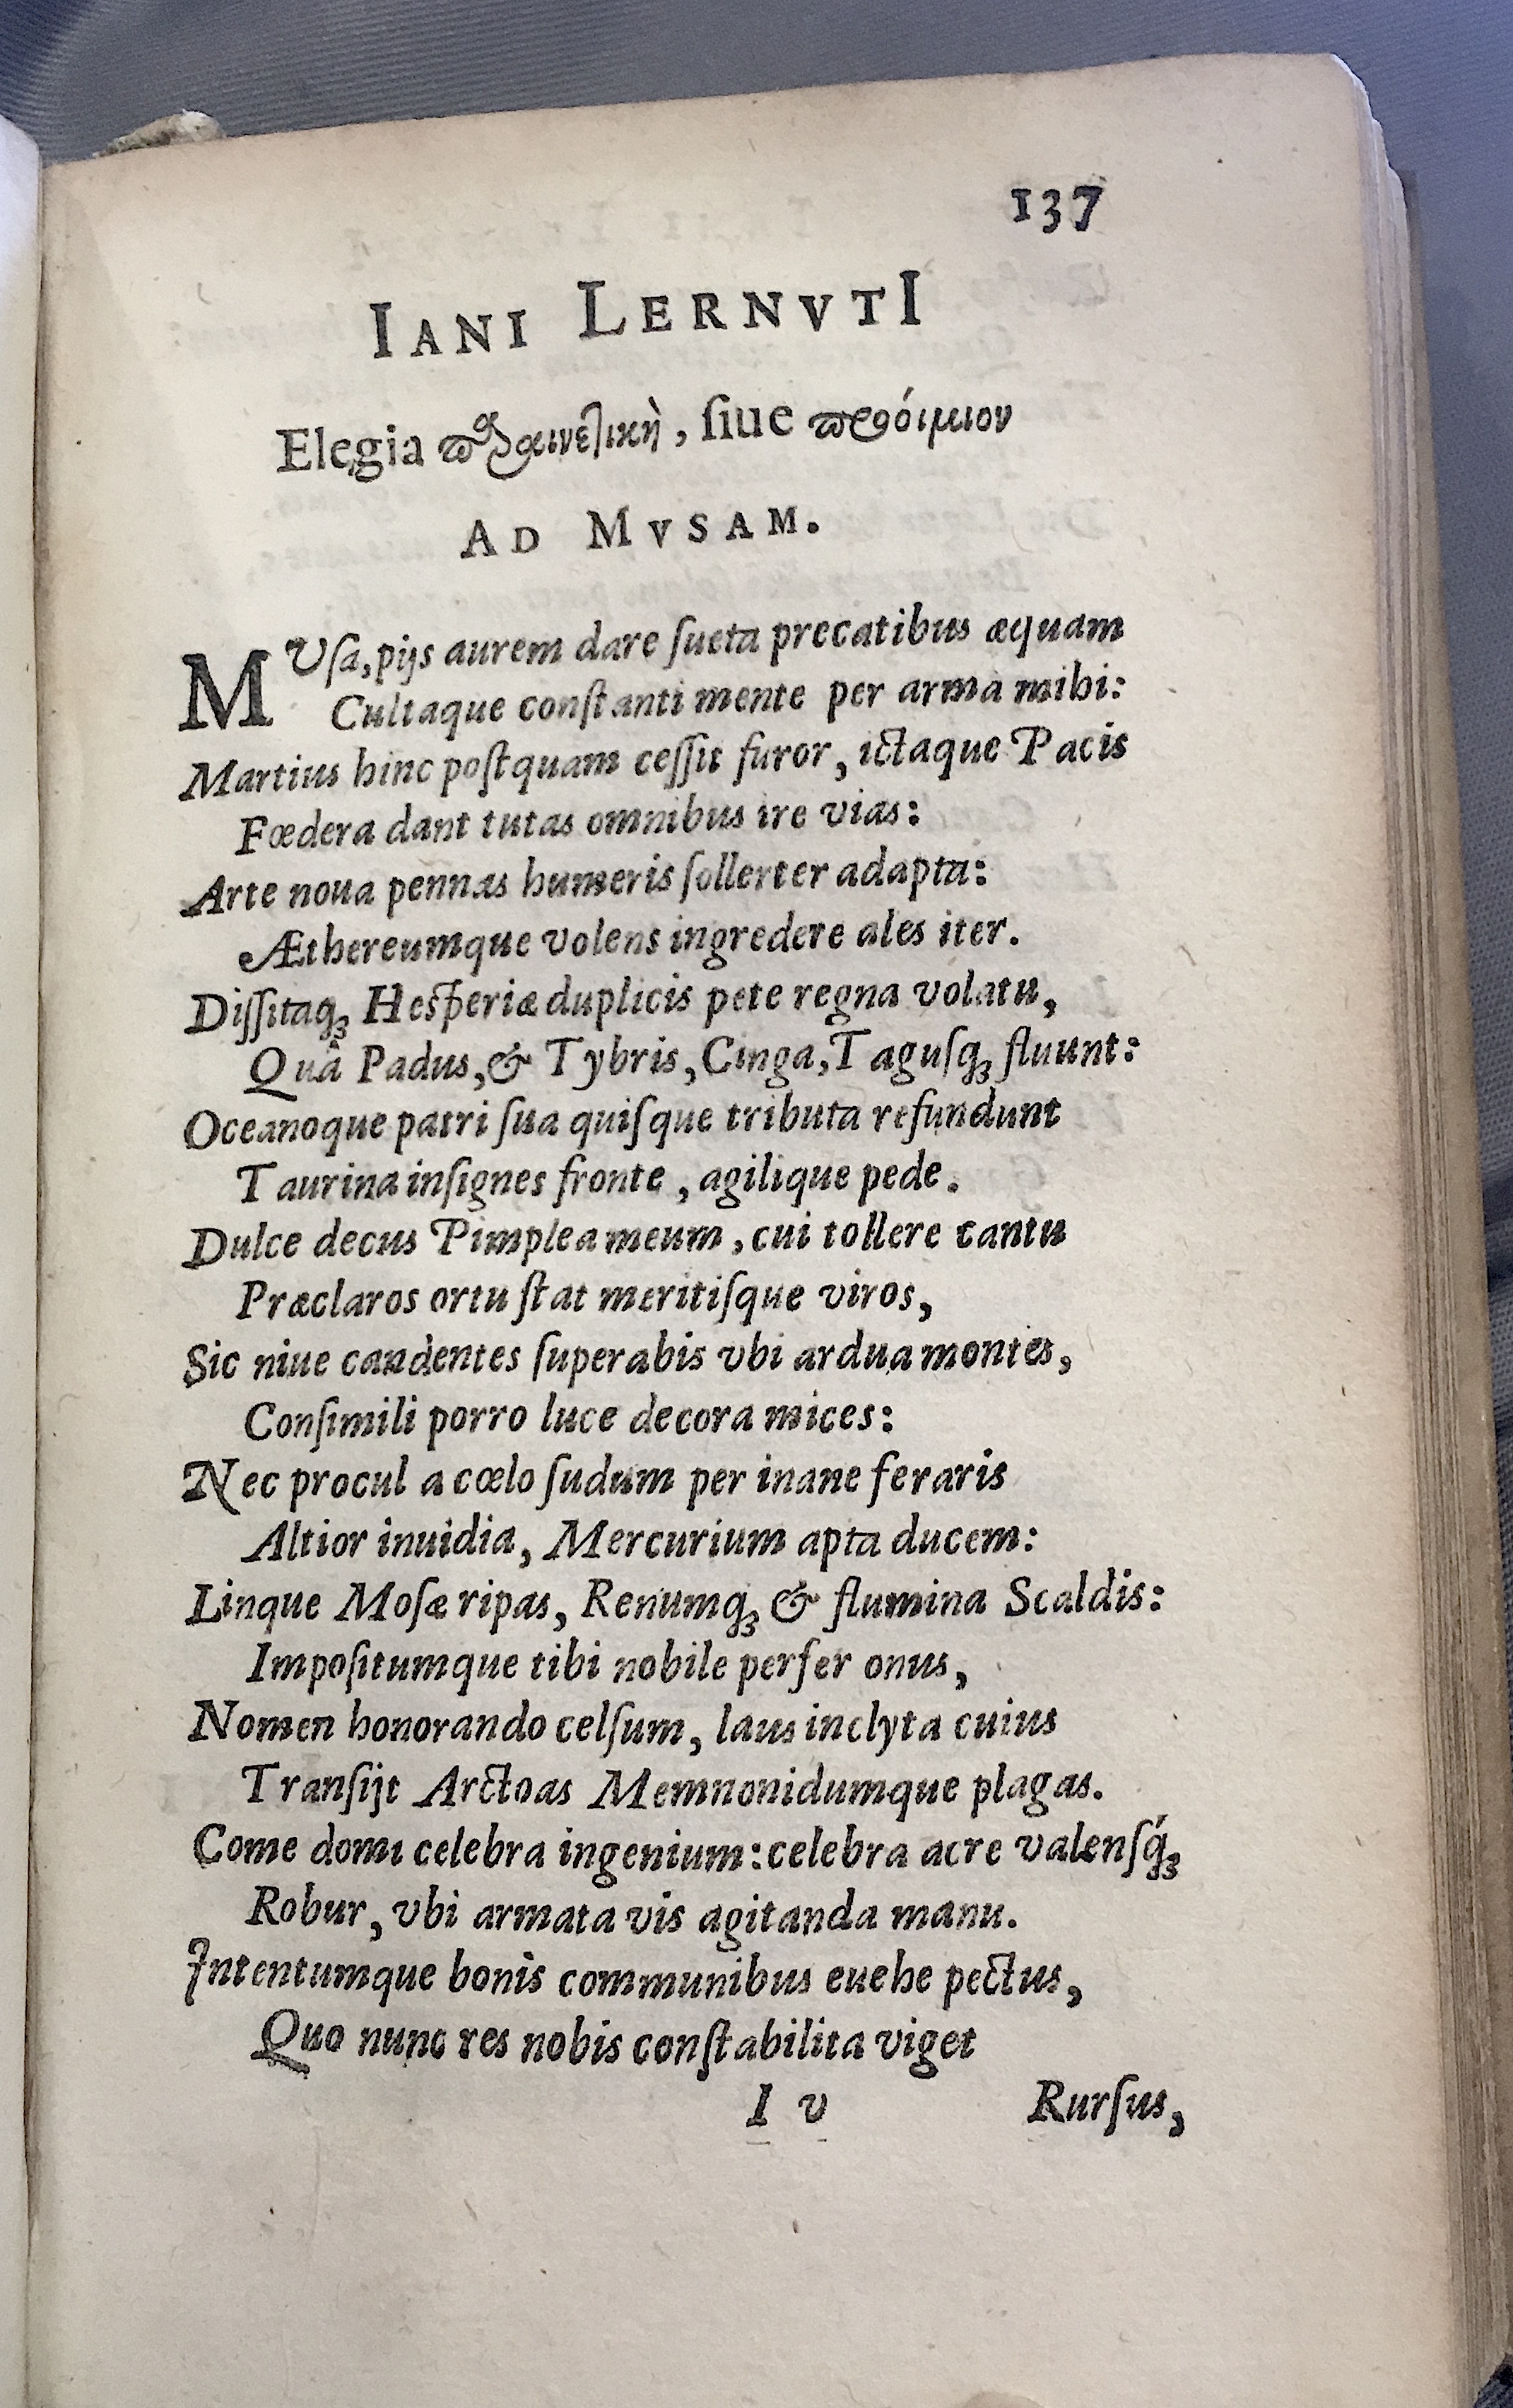 137
IANI LERNVTI
Elegia παραινετικὴ, ſiue προόιμιον
AD MVSAM.
MUſa, pijs aurem dare ſueta precatibus æquam
Cultaque conſtanti mente per arma mihi:
Martius hinc poſtquam ceſſit furor, ictaque Pacis
Fœdera dant tutas omnibus ire vias:
Arte noua pennas humeris ſollerter adapta:
Æthereumque volens ingredere ales iter.
Diſſitaqꝫ Heſperiæ duplicis pete regna volatu,
Quâ Padus, & Tybris, Cinga, Taguſqꝫ fluunt:
Oceanoque patri ſua quiſque tributa refundunt
Taurina inſignes fronte, agilique pede.
Dulce decus Pimplea meum, cui tollere cantu
Præclaros ortu ſtat meritiſque viros,
Sic niue candentes ſuperabis vbi ardua montes,
Conſimili porro luce decora mices:
Nec procul a cœlo ſudum per inane feraris
Altior inuidia, Mercurium apta ducem:
Linque Moſæ ripas, Renumqꝫ & flumina Scaldis:
Impoſitumque tibi nobile perfer onus,
Nomen honorando celſum, laus inclyta cuius
Tranſijt Arctoas Memnonidumque plagas.
Come domi celebra ingenium: celebra acre valenſq́ꝫ
Robur, vbi armata vis agitanda manu.
Intentumque bonis communibus euehe pectus,
Quo nunc res nobis conſtabilita viget
I v
Rurſus,